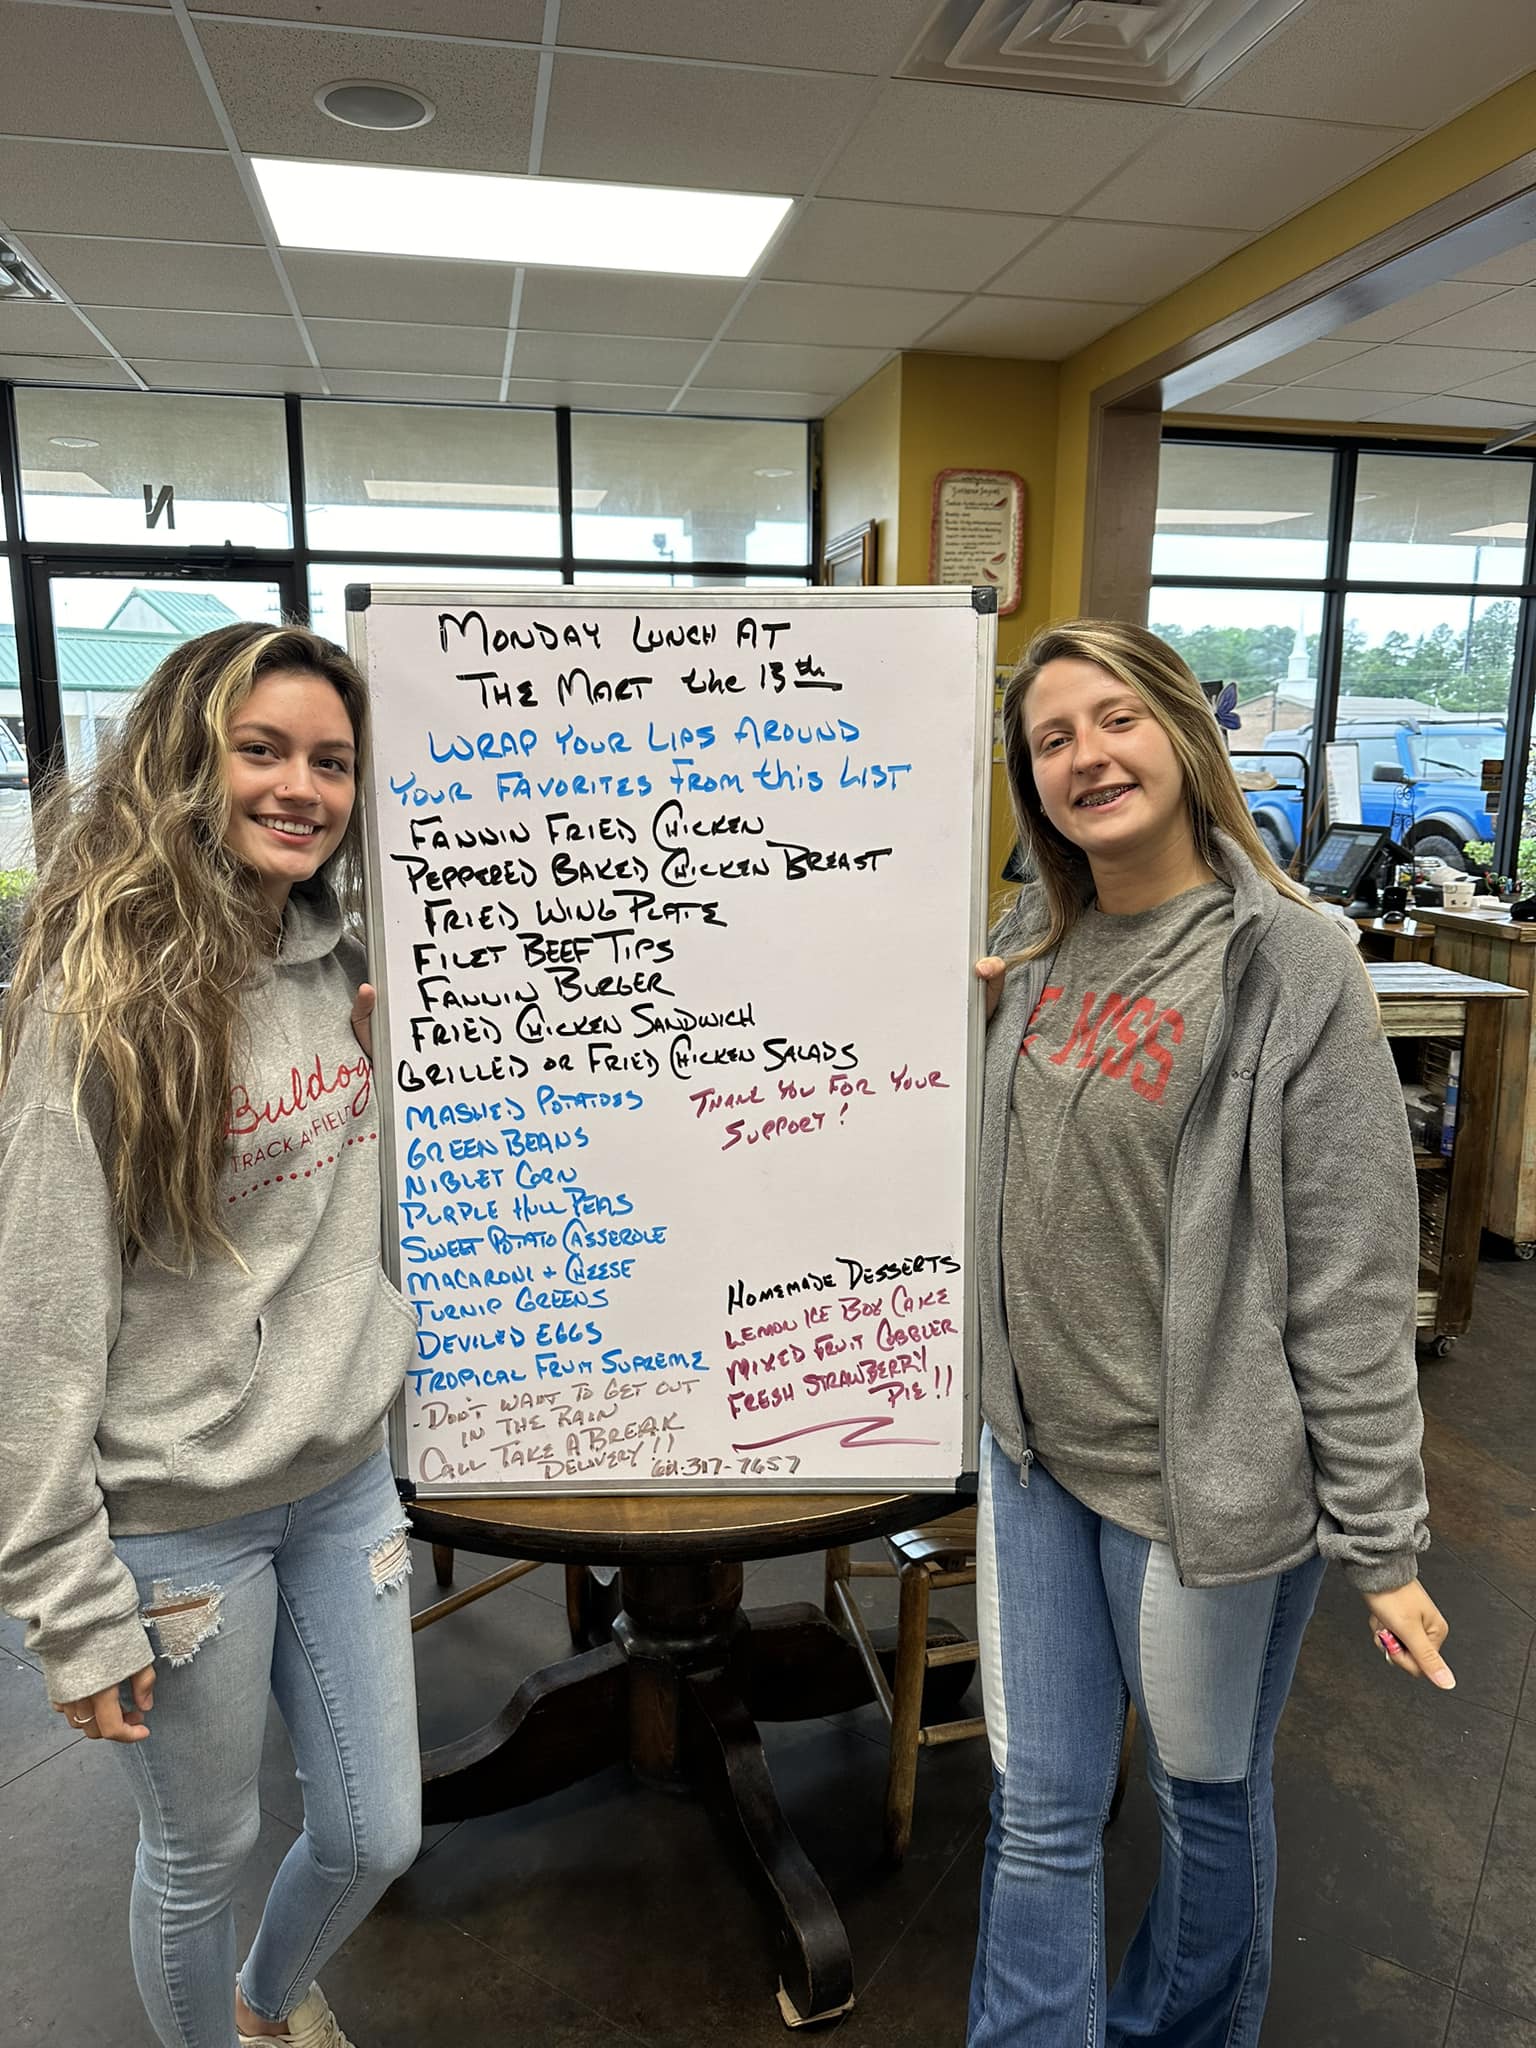 N
Monday Lunch At
The Mart the 13th
Wrap Your Lips Around
Your Favorites From this List
Fannin Fried Chicken
Peppered Baked Chicken Breast
Fried Wing Plate
Filet Beef Tips
Fannin Burger
Fried Chicken Sandwich
Grilled or Fried Chicken Salads
Mashed Potatoes
Green Beans
Niblet Corn
Purple Hull Peas
Sweet Potato Casserole
Macaroni + Cheese
Turnip Greens
Deviled Eggs
Tropical Fruit Supreme
Thank You For Your
Support!
Homemade Desserts
Lemon Ice Box Cake
Mixed Fruit Cobbler
Fresh Strawberry
Pie!!
- Don't Want To Get Out
In The Rain
Call Take A Break
Delivery!! 601-317-7657
Bulldog
TRACK & FIELD
MISS